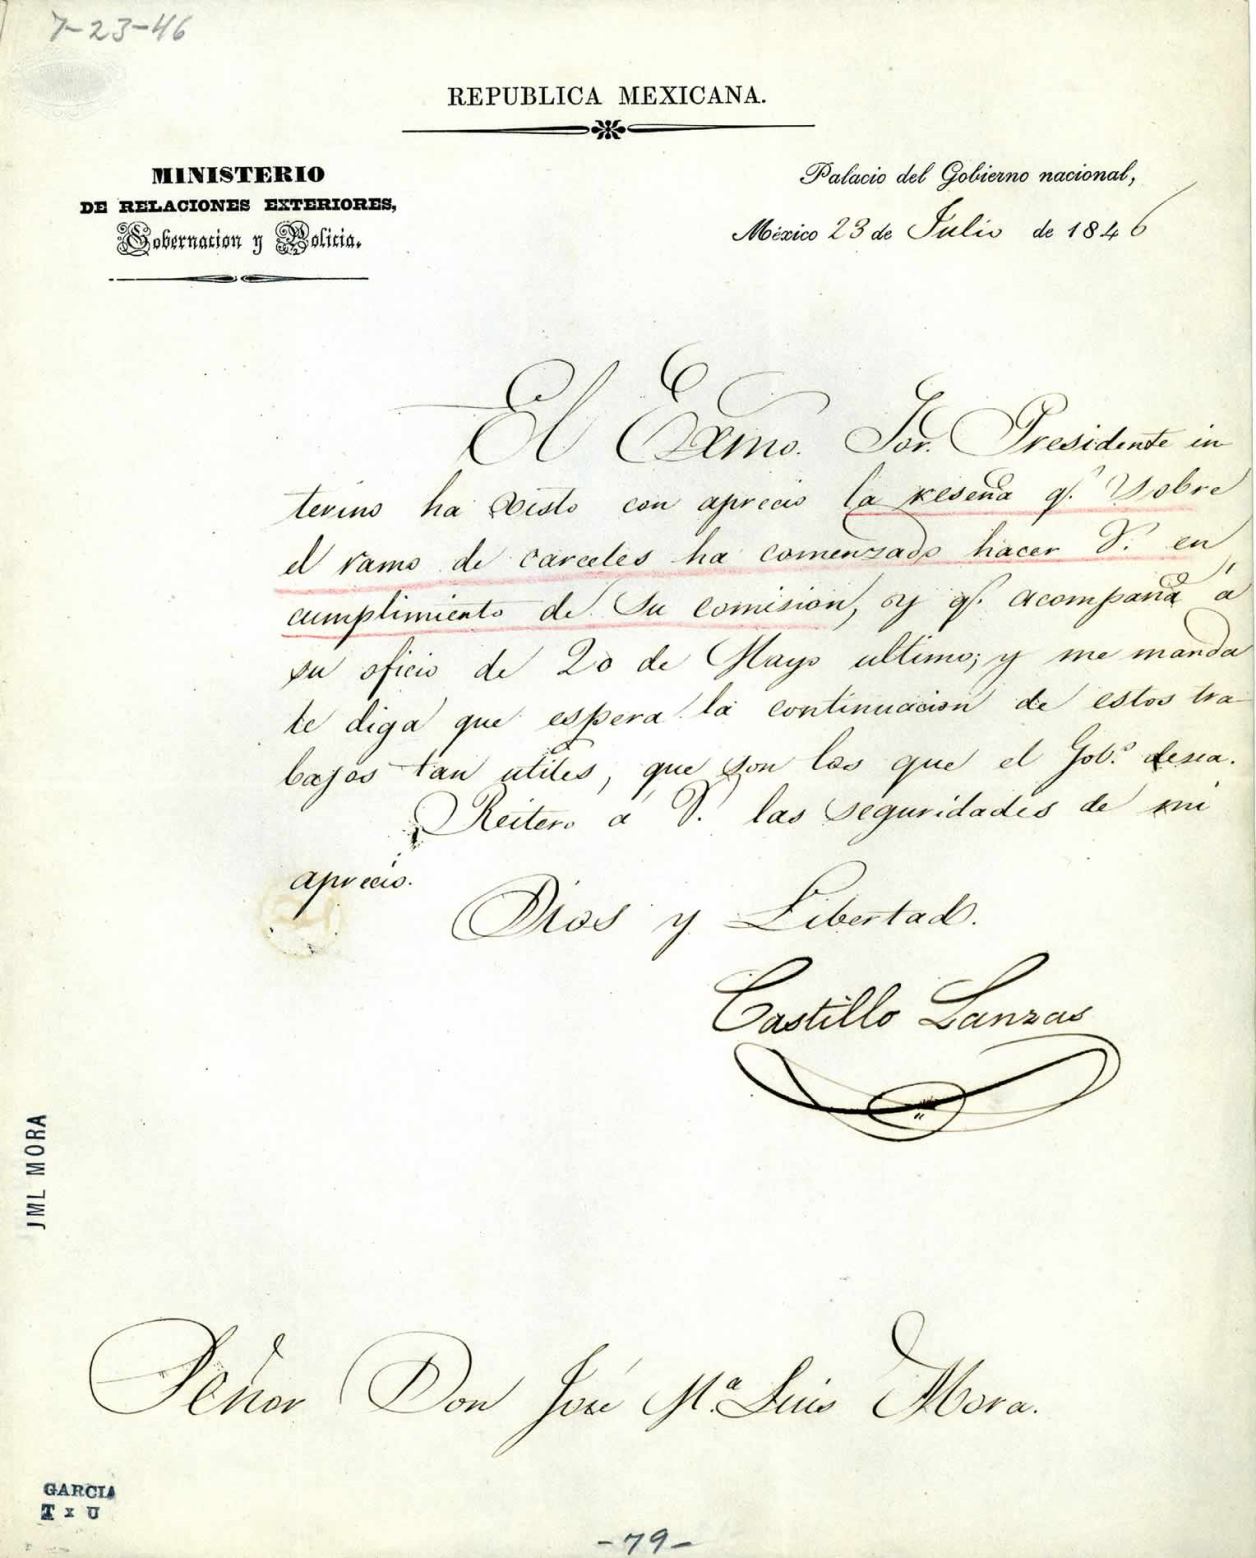 7-23-46
REPUBLICA MEXICANA.
MINISTERIO
DE RELACIONES EXTERIORES,
Gobernacion y Policia.
Palacio del Gobierno nacional,
México 23 de Julio de 1846
El Exmo. Sor. Presidente in
terino ha visto con aprecio la reseña q.e sobre
el ramo de carceles ha comenzado hacer V. en
cumplimiento de su comision, y q.e acompaña á
su oficio de 20 de Mayo ultimo; y me manda
le diga que espera la continuacion de estos tra-
bajos tan utiles, que son los que el Gob.o desea.
Reitero á V. las seguridades de mi
aprecio.
Dios y Libertad.
Castillo Lanzas
JML MORA
Señor Don José M.a Luis Mora.
GARCIA
T x U
-79-